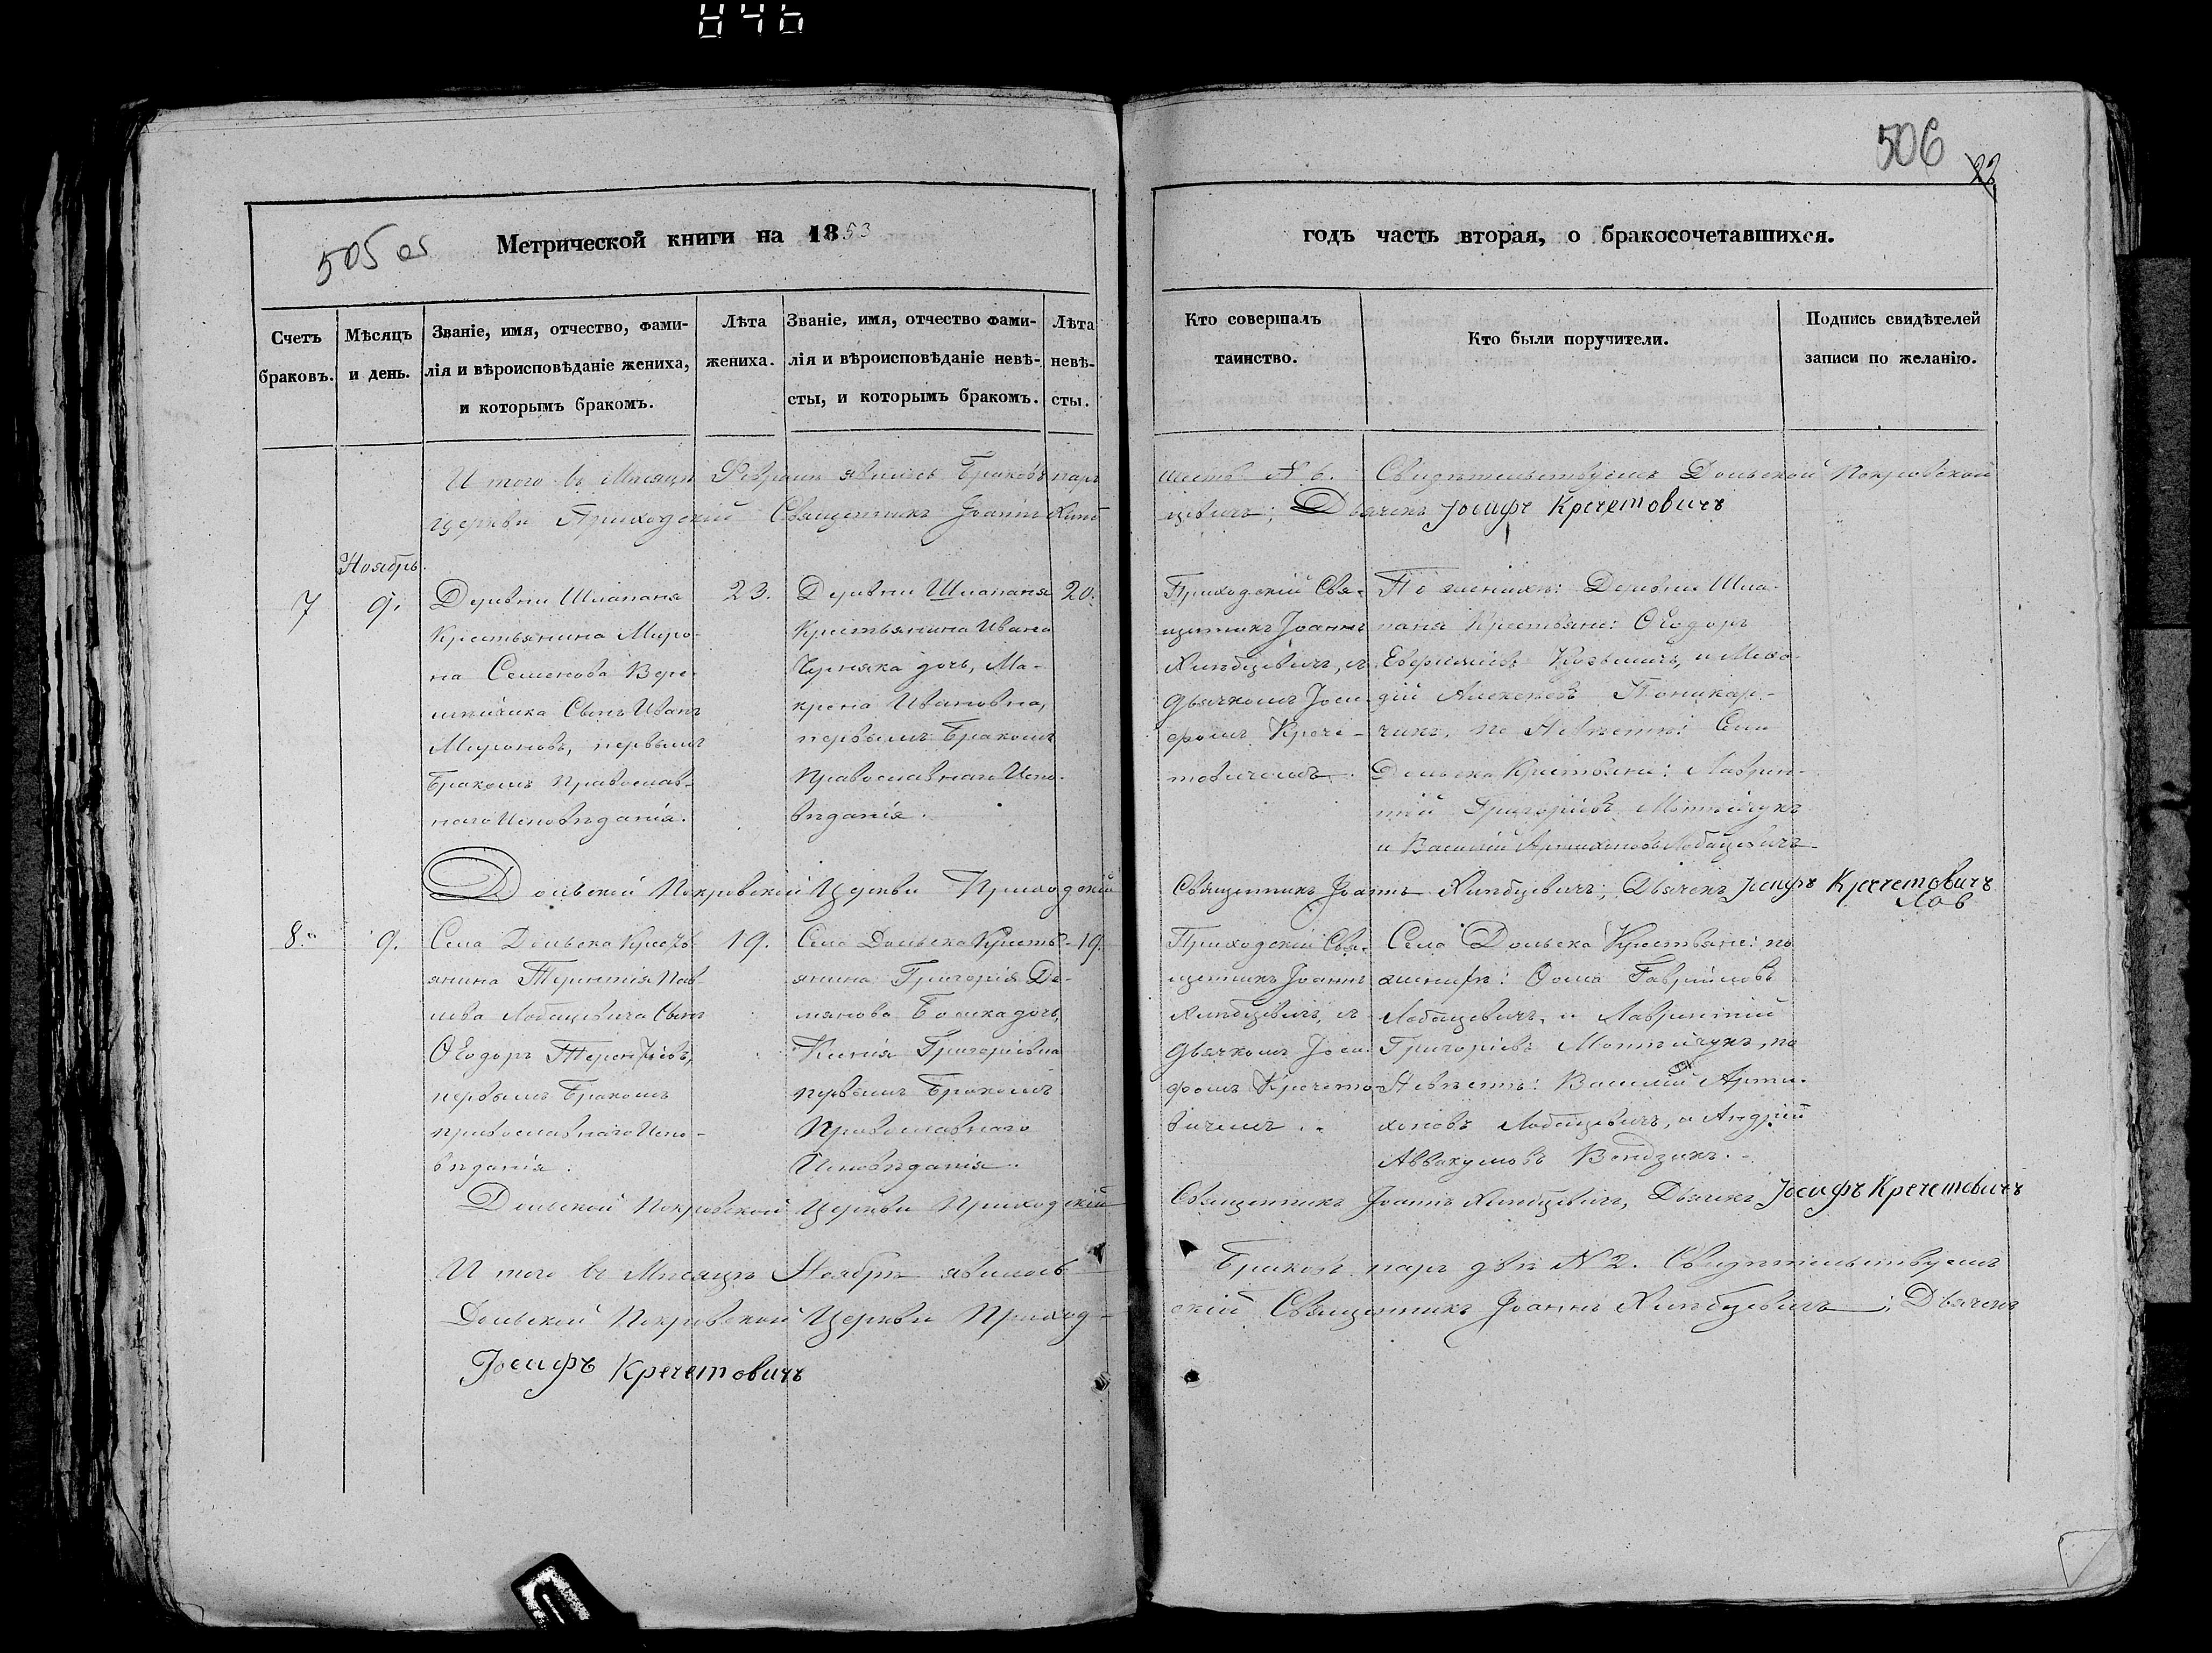 846
506
22
505 об
Метрической книги на 1853
годъ часть вторая, о бракосочетавшихся.
Счетъ браковъ.
Мѣсяцъ и день.
Званіе, имя, отчество, фами-
лія и вѣроисповѣданіе жениха,
и которымъ бракомъ.
Лѣта
жениха.
Званіе, имя, отчество фами-
лія и вѣроисповѣданіе невѣ-
сты, и которымъ бракомъ.
Лѣта
невѣ-
сты.
Кто совершалъ
таинство.
Кто были поручители.
Подпись свидѣтелей
записи по желанію.
И того въ Мѣсяцѣ Февралѣ явилось Браковъ паръ шесть N 6. Свидѣтельствуемъ Дольской Покровской
церкви Приходскій Священникъ Іоаннъ Хлѣбцевичъ; Дьячекъ Іосифъ Кречетовичъ
Ноябрь
7
9.
Деревни Шлапаня
Крестьянина Миро-
на Семенова
Сынъ Иванъ
Мироновъ, первымъ
Бракомъ Православ-
наго Исповѣданія.
23.
Деревни Шлапаня
Крестьянина Ивана
Черняка дочь, Ма-
крена Ивановна,
первымъ Бракомъ
Православнаго Испо-
вѣданія.
20.
Приходскій Свя-
щенникъ Іоаннъ
Хлѣбцевичъ, съ
Дьячкомъ Іоси-
фомъ Крече-
товичемъ.
По женихѣ: Деревни Шла-
паня Крестьяне: Ѳеодоръ
и Меѳо-
дій Алексѣевъ
по Невѣстѣ: Села
Дольска Крестьяне: Лаврен-
тій Григоріевъ Мотейчукъ
и Василій Артихоновъ Лобацевичъ
Дольской Покровской Церкви Приходскій Священникъ Іоаннъ Хлѣбцевичъ; Дьячекъ Іосифъ Кречетовичъ
Лов
8.
9.
Села Дольска Кресть-
янина Терентія Пав-
лова Лобацевича Сынъ
Ѳеодоръ Терентіевъ,
первымъ Бракомъ
православнаго Испо-
вѣданія.
19.
Села Дольска Кресть-
янина Григорія Де-
мянова дочь,
Ксенія Григоріевна
первымъ Бракомъ
Православнаго
Исповѣданія.
19.
Приходскій Свя-
щенникъ Іоаннъ
Хлѣбцевичъ, съ
Дьячкомъ Іоси-
фомъ Кречето-
вичемъ.
Села Дольска Крестьяне: по
женихѣ: Ѳома Гавріиловъ
Лобацевичъ, и Лаврентій
Григоріевъ Мотейчукъ, по
Невѣстѣ: Василій Арти-
хоновъ Лобацевичъ, и Андрей
Аввакумовъ
Дольской Покровской Церкви Приходскій Священникъ Іоаннъ Хлѣбцевичъ, Дьячекъ Іосифъ Кречетовичъ
И того въ Мѣсяцѣ Ноябрѣ явилось Браковъ паръ двѣ N 2. Свидѣтельствуемъ
Дольской Покровской Церкви Приход-скій Священникъ Іоаннъ Хлѣбцевичъ; Дьячекъ
Іосифъ Кречетовичъ